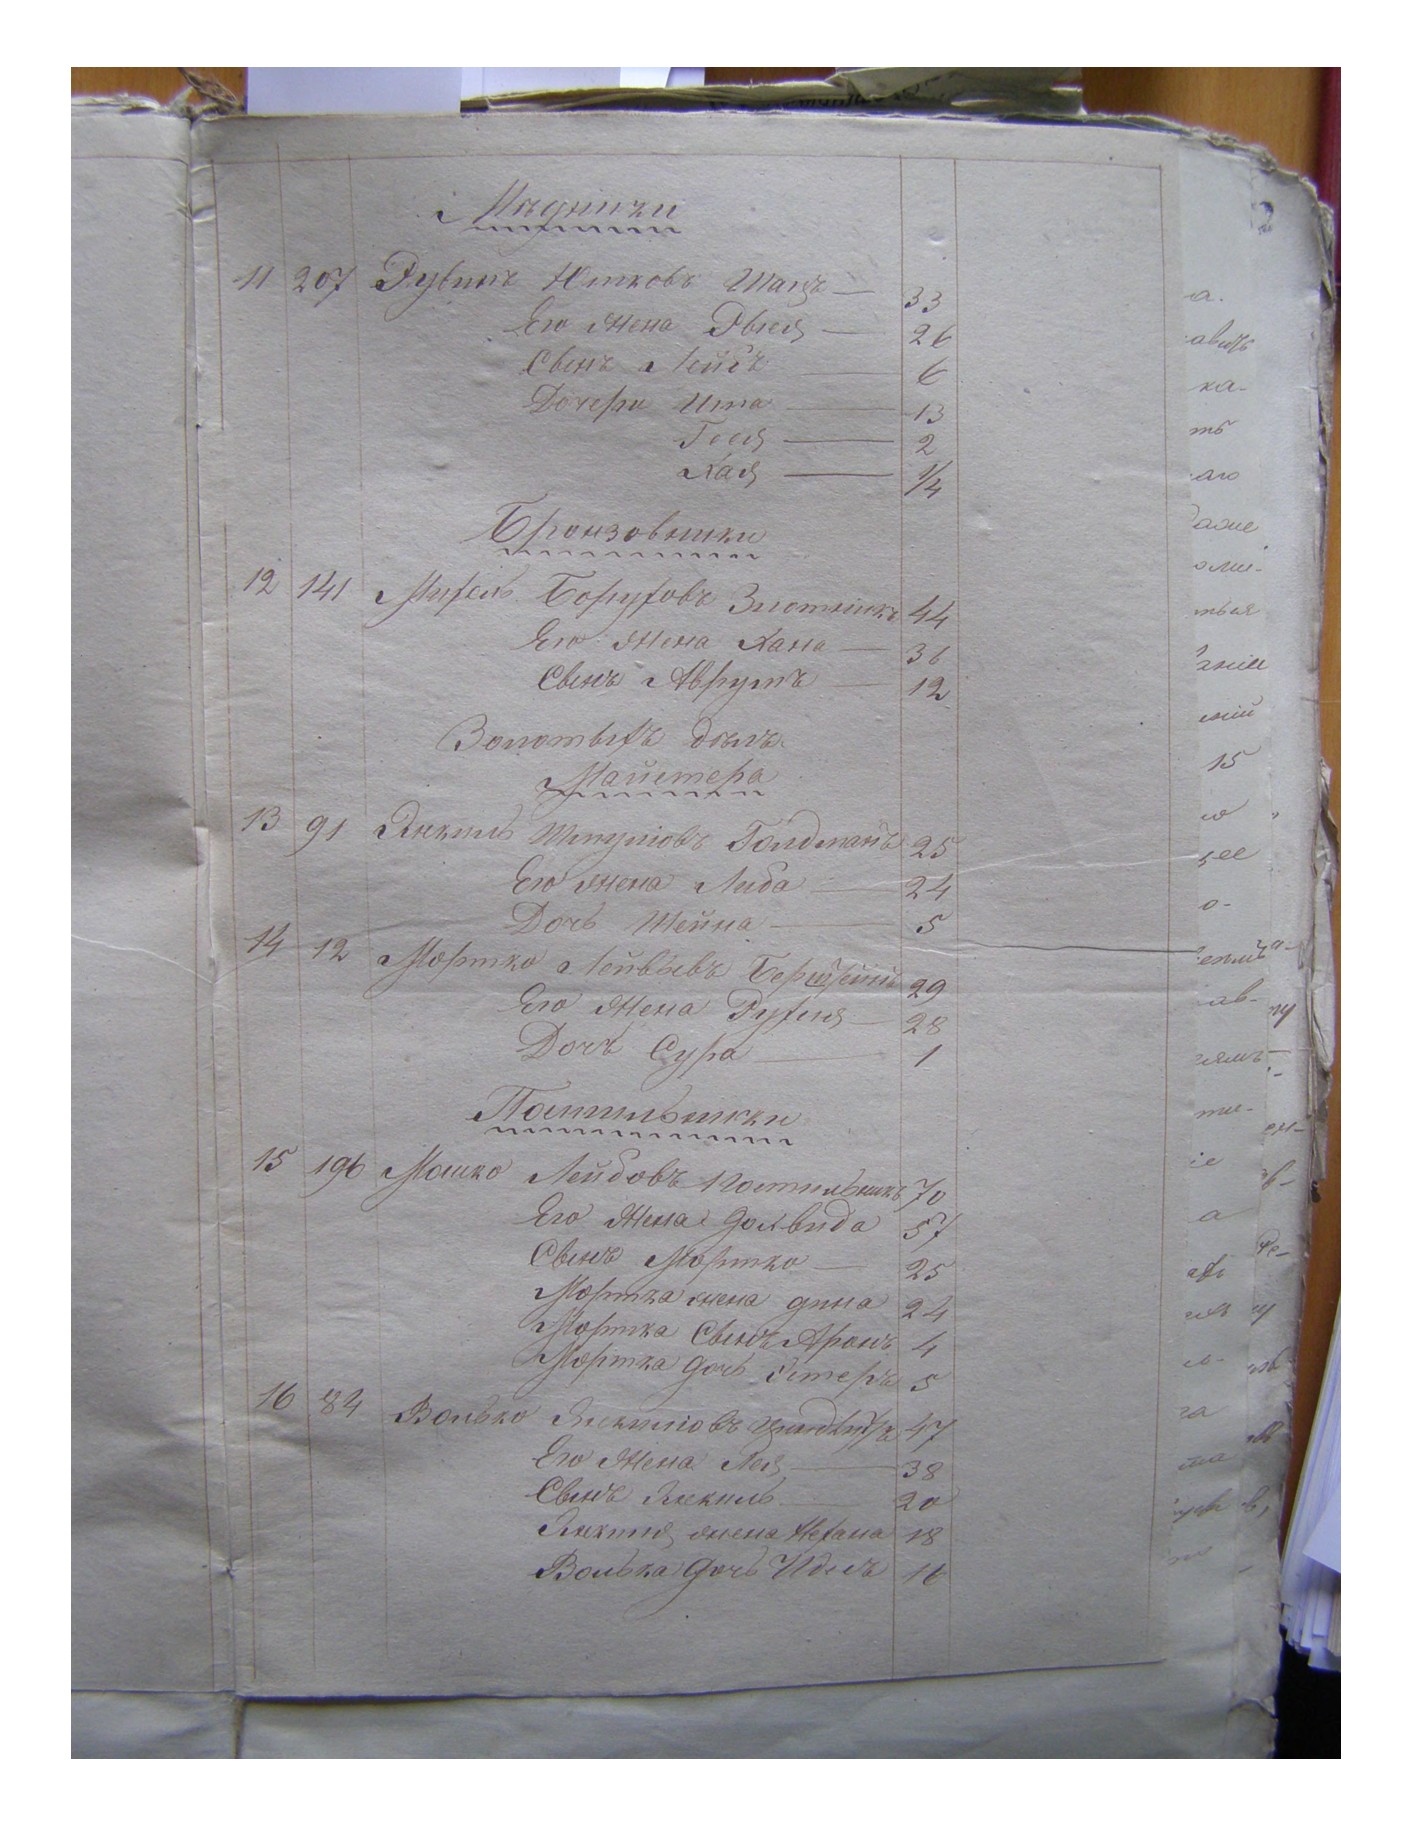 Мѣдники
11 207 Рувинъ Ицковъ Шацъ — 33
Его жена Рыся — 26
Сынъ Лейбъ — 6
Дочери Ита — 13
Гося — 2
Хая — 1/4
Бронзовники
12 141 Михель Боруховъ Злотникъ 44
Его жена Хана — 36
Сынъ Аврумъ — 12
Золотыхъ дѣлъ
Майстера
13 91 Янкель Шмуліовъ Голдманъ 25
Его жена Либа — 24
Дочь Шейна — 5
14 12 Мортко Лейбовъ 29
Его жена Рухля — 28
Дочь Сура — 1
Постильники
15 196 Мошко Лейбовъ Постильникъ 70
Его жена 57
Сынъ Мортко — 25
Мортка жена Дина 24
Мортка Сынъ Аронъ 4
Мортка дочь Естеръ 5
16 84 Волько Янкеліовъ 47
Его жена Лея — 38
Сынъ Янкель — 20
Янкеля жена Нехама 18
Волька дочь Идесъ 16